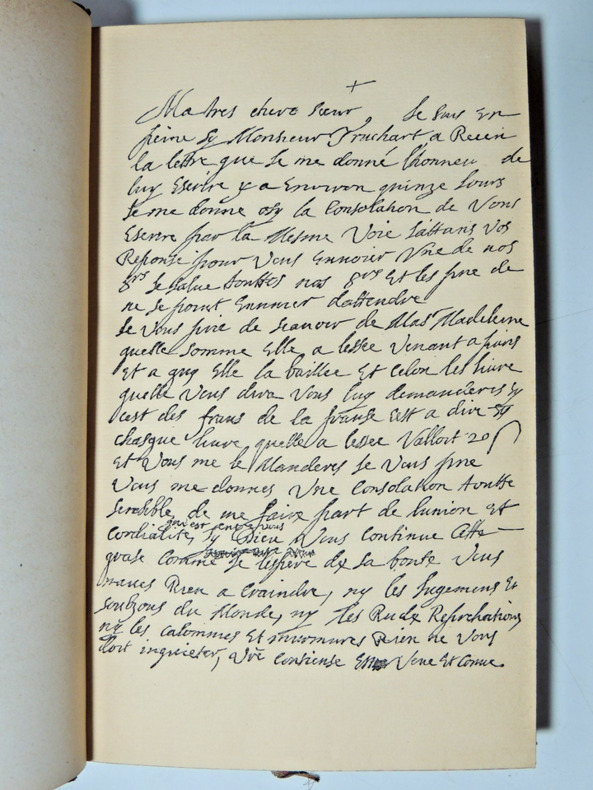 Ma tres chere sœur, Je suis En
peine sy Monsieur Truchart a Receu
la lettre que Je me donné lhonneu de
luy Escrire y a Environ quinze Jours
Je me donne osy la Consolation de Vous
Escrire par la Mesme Voie Jattans Vos
Reponse pour Vous Ennoier Vne de nos
Srs Je salue touttes nos Srs Et les prie de
ne se point Ennuier dattendre
Je Vous prie de scauoir de Mas Madeleine
quelle somme Elle a lessee Venant a paris
Et a quy Elle la baillee Et celon les liure
quelle Vous dira Vous luy demanderes sy
cest des frans de la franse cest a dire sy
chasque liure quelle a lessee Valloit 20 ſ
Et Vous me le Manderes Je Vous prie
Vous me donnes Vne Consolation toutte
sensible de me faire part de lunion Et
Cordialite, qui est entre vous sy Dieu Vous Continue Cette
grase Comme Je lespere de sa bonte Vous
naues Rien a Craindre, ny les Jugemens Et
soubsons du Monde, ny les Rudes Reprehentions,
ny les calomnies Et murmures Rien ne Vous
doit inquieter, Vre Consiense Veue Et Conue